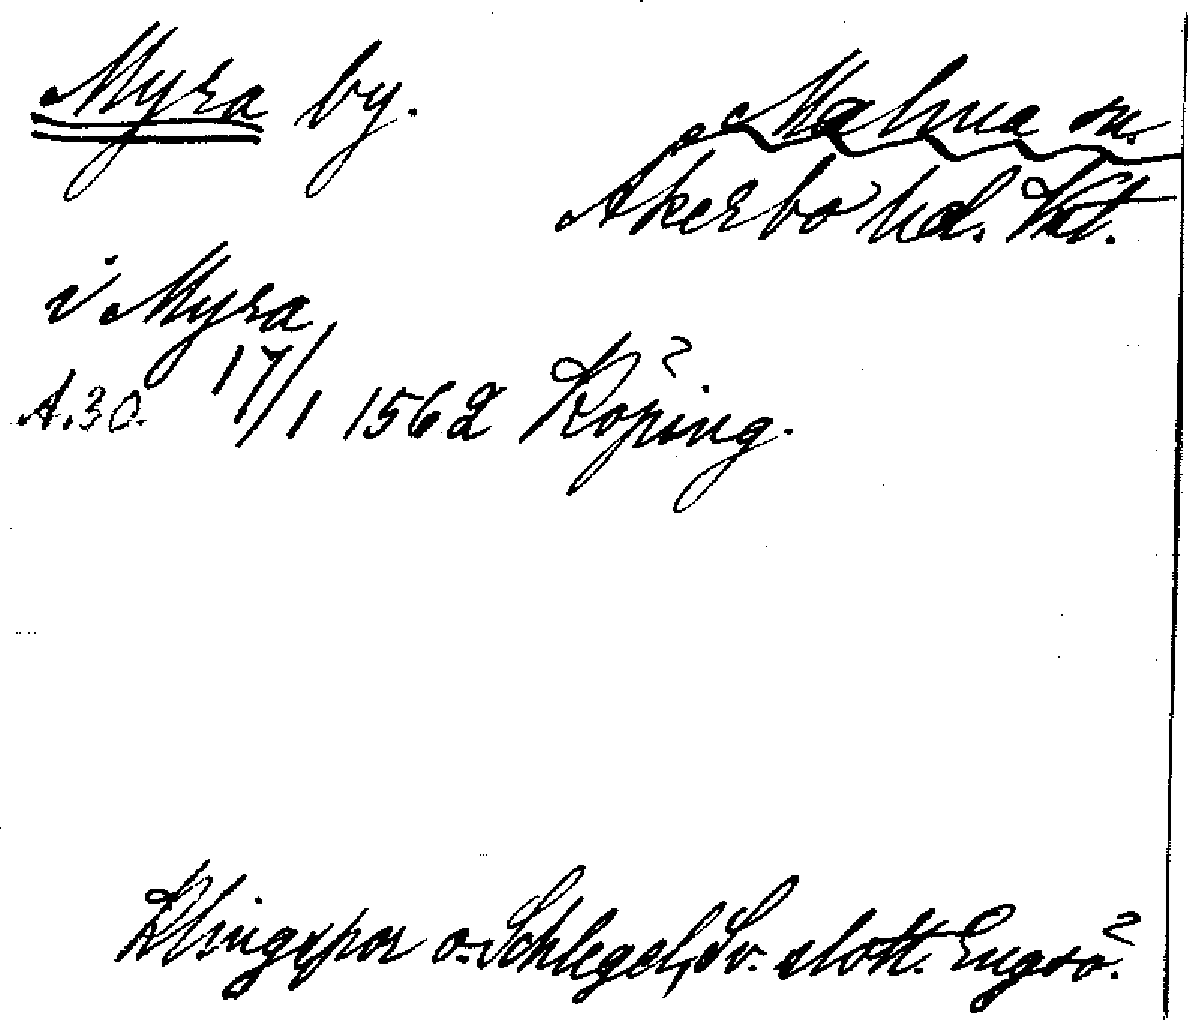 Myra by.
Malma sn.
Åkerbo hd. Vstm.
i Myra
A.30. 17/1 1562 Köping.
Klingspor o. Schlegel, Sv. slott. Engsö.